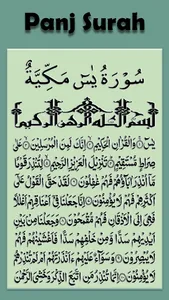 Panj Surah
سُوْرَةُ يٰسٓ مَكِّيَّةٌ
بِسْمِ اللّٰهِ الرَّحْمٰنِ الرَّحِيْمِ
يٰسٓ ۝ وَالْقُرْاٰنِ الْحَكِيْمِ ۝ اِنَّكَ لَمِنَ الْمُرْسَلِيْنَ ۝ عَلٰى
صِرَاطٍ مُّسْتَقِيْمٍ ۝ تَنْزِيْلَ الْعَزِيْزِ الرَّحِيْمِ ۝ لِتُنْذِرَ قَوْمًا
مَّآ اُنْذِرَ اٰبَآؤُهُمْ فَهُمْ غٰفِلُوْنَ ۝ لَقَدْ حَقَّ الْقَوْلُ عَلٰٓى
اَكْثَرِهِمْ فَهُمْ لَا يُؤْمِنُوْنَ ۝ اِنَّا جَعَلْنَا فِيْٓ اَعْنَاقِهِمْ اَغْلٰلًا
فَهِيَ اِلَى الْاَذْقَانِ فَهُمْ مُّقْمَحُوْنَ ۝ وَجَعَلْنَا مِنْۢ بَيْنِ
اَيْدِيْهِمْ سَدًّا وَّمِنْ خَلْفِهِمْ سَدًّا فَاَغْشَيْنٰهُمْ فَهُمْ
لَا يُبْصِرُوْنَ ۝ وَسَوَآءٌ عَلَيْهِمْ ءَاَنْذَرْتَهُمْ اَمْ لَمْ تُنْذِرْهُمْ
لَا يُؤْمِنُوْنَ ۝ اِنَّمَا تُنْذِرُ مَنِ اتَّبَعَ الذِّكْرَ وَخَشِيَ الرَّحْمٰنَ